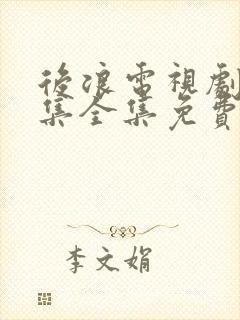 後浪電視劇
集全集免費
李文娟